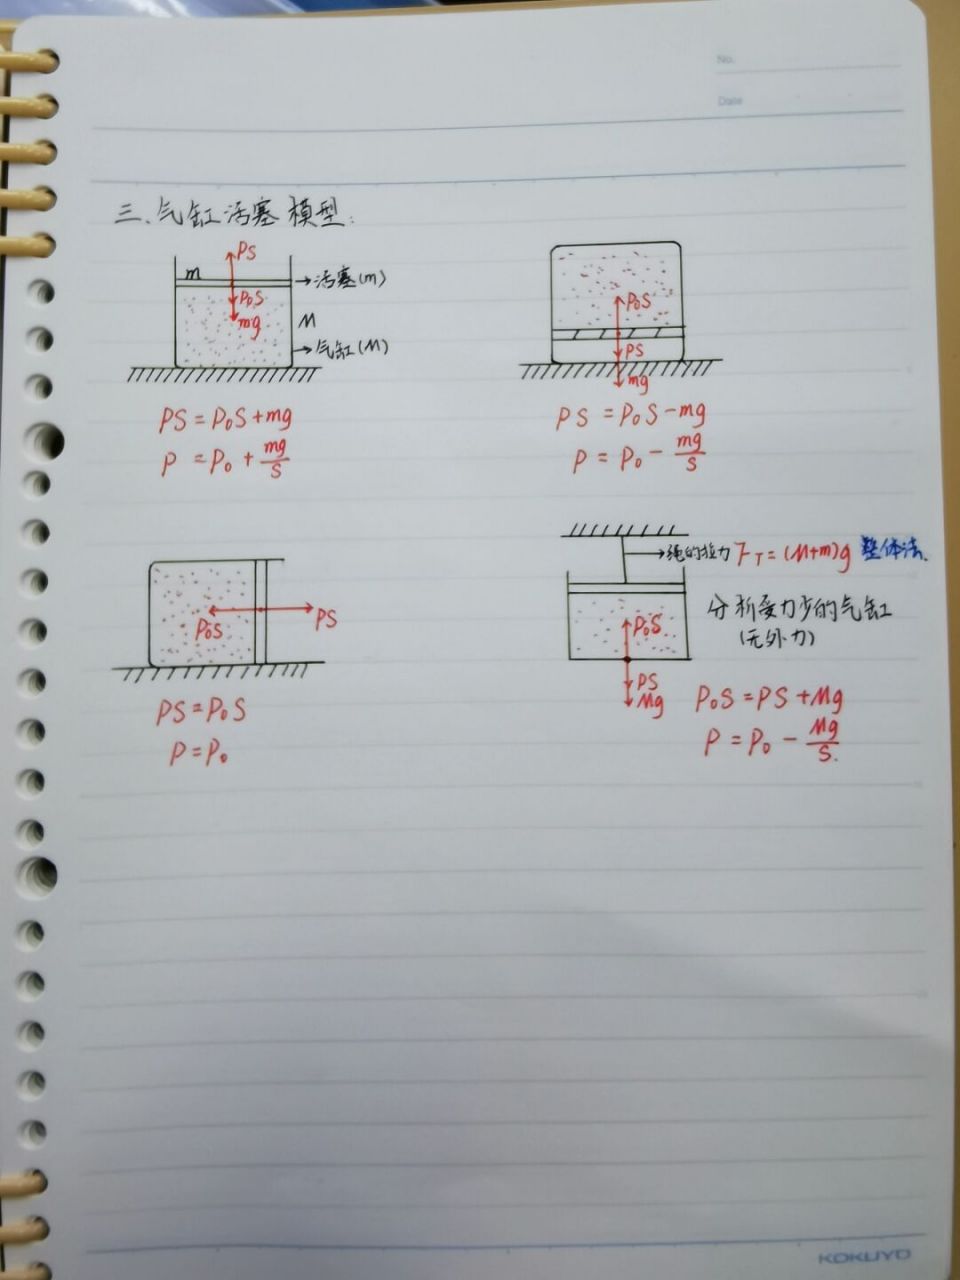 No.
Date
三、气缸活塞模型:
PS
m
→活塞(m)
P₀S
mg
M
→气缸(M)
PS = P₀S + mg
P = P₀ + mg/S
P₀S
PS
mg
PS = P₀S - mg
P = P₀ - mg/S
P₀S
PS
PS = P₀S
P = P₀
→绳的拉力 F_T = (M+m)g 整体法.
分析受力少的气缸
(无外力)
P₀S
PS
Mg
P₀S = PS + Mg
P = P₀ - Mg/S.
KOKUYO